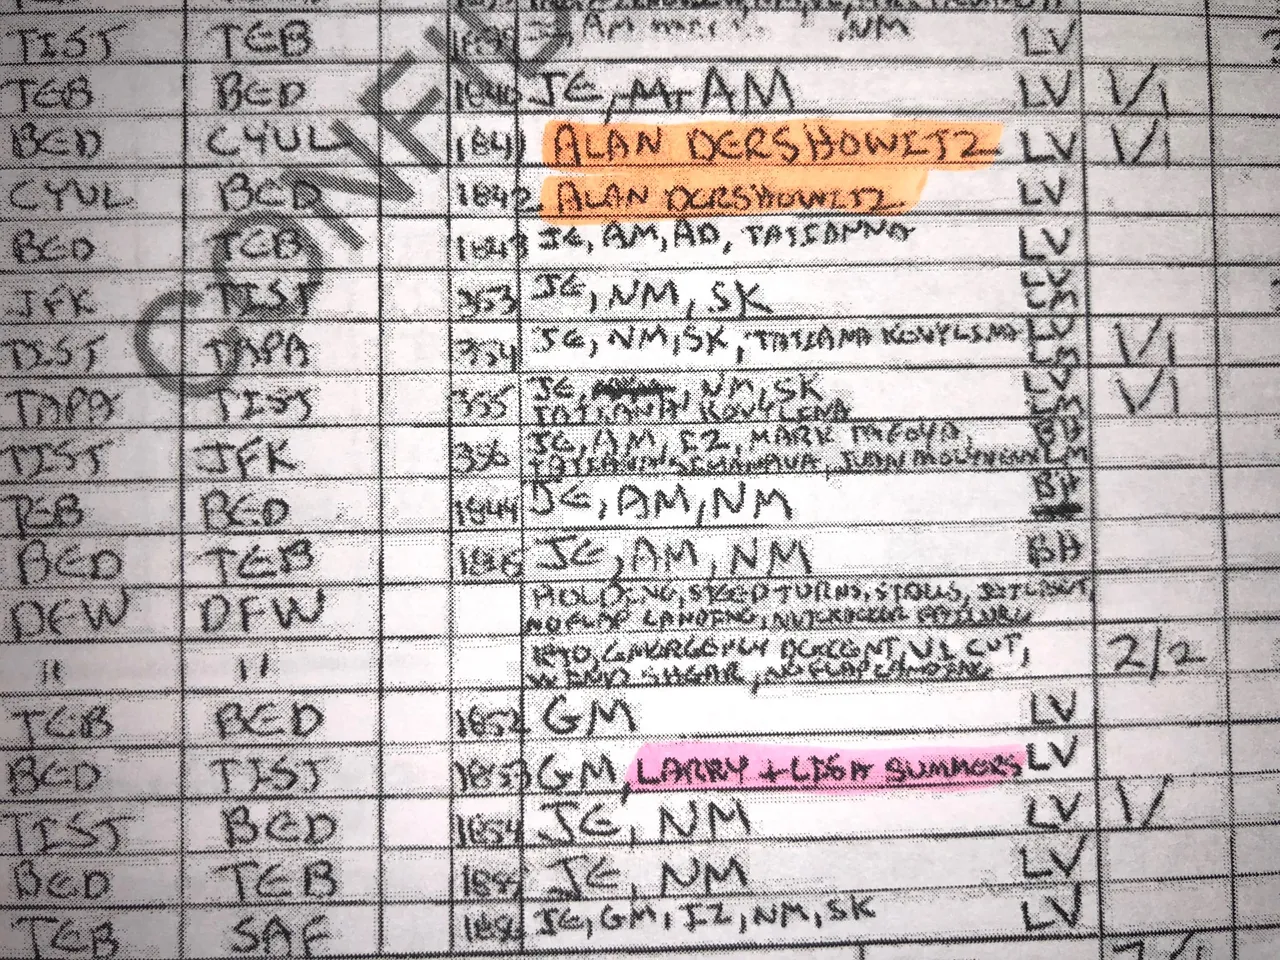 TIST TEB NM LV
TEB BED 1840 JE, AM LV 1/1
BED CYUL 1841 ALAN DERSHOWITZ LV 1/1
CYUL BED 1842 ALAN DERSHOWITZ LV
BED TEB 1843 JE, AM, AD, TATIANNA LV
JFK TIST 353 JE, NM, SK LV
TIST TAPA 354 JE, NM, SK, TATIANA KOVYLINA LV 1/1
TAPA TIST 355 JE, NM, SK LV 1/1
TATIANA KOVYLINA
TIST JFK 356 JE, AM, IZ, MARK BH
TEB BED 1844 JE, AM, NM BH
BED TEB JE, AM, NM BH
DFW DFW HOLDING, STEEP TURNS, STALLS,
NO FLAP LANDING,
" " RTO, EMERGENCY DESCENT, V1 CUT, 2/2
WIND SHEAR, NO FLAP LANDING
TEB BED 1852 GM LV
BED TIST 1853 GM, LARRY + LISA SUMMERS LV
TIST BED 1854 JE, NM LV 1/
BED TEB JE, NM LV
TEB SAF JE, GM, IZ, NM, SK LV
CONFID